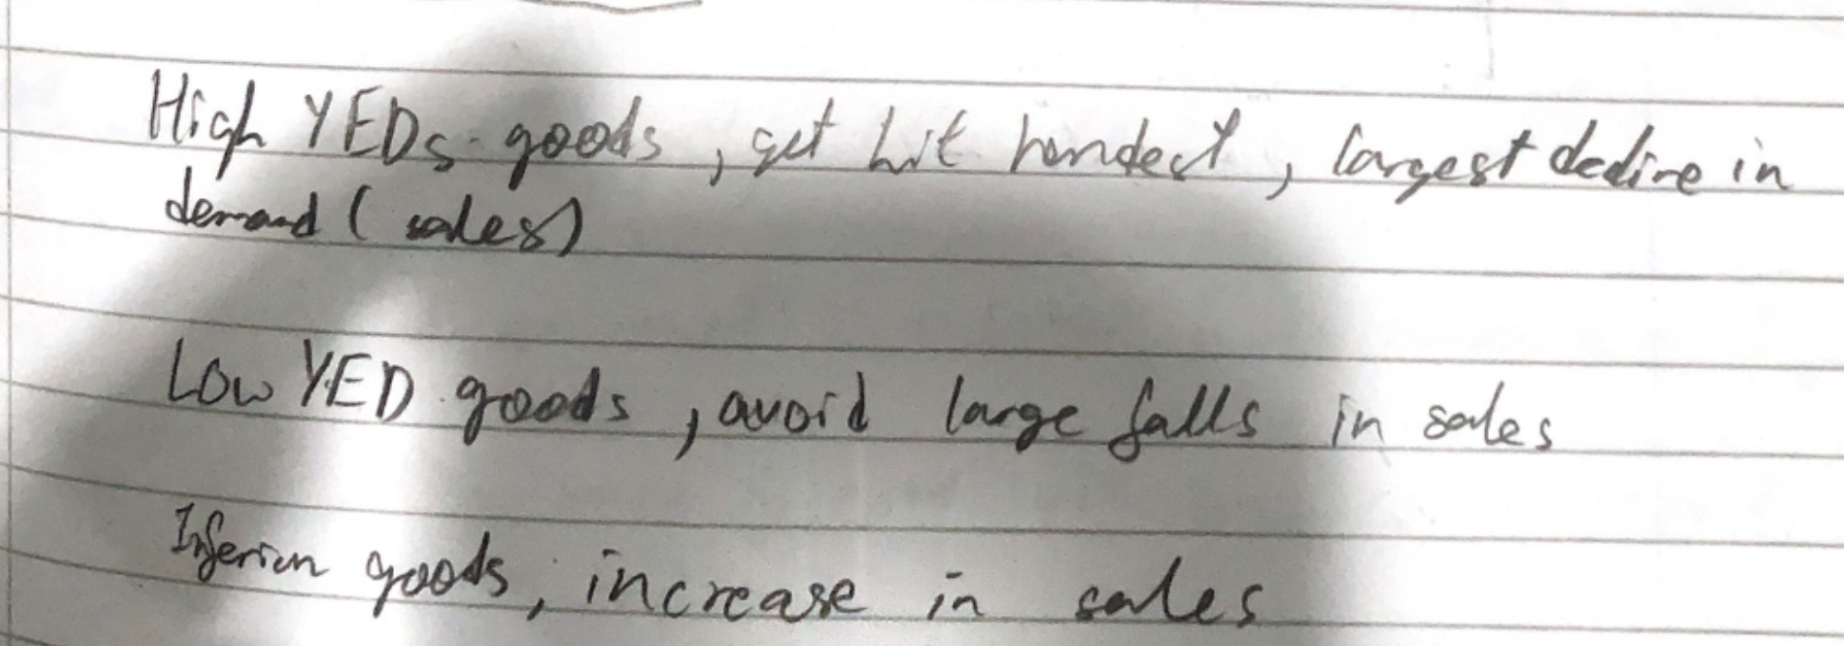 High YEDs goods, get hit hardest, largest decline in
demand (sales)
Low YED goods, avoid large falls in sales
Inferior goods, increase in sales